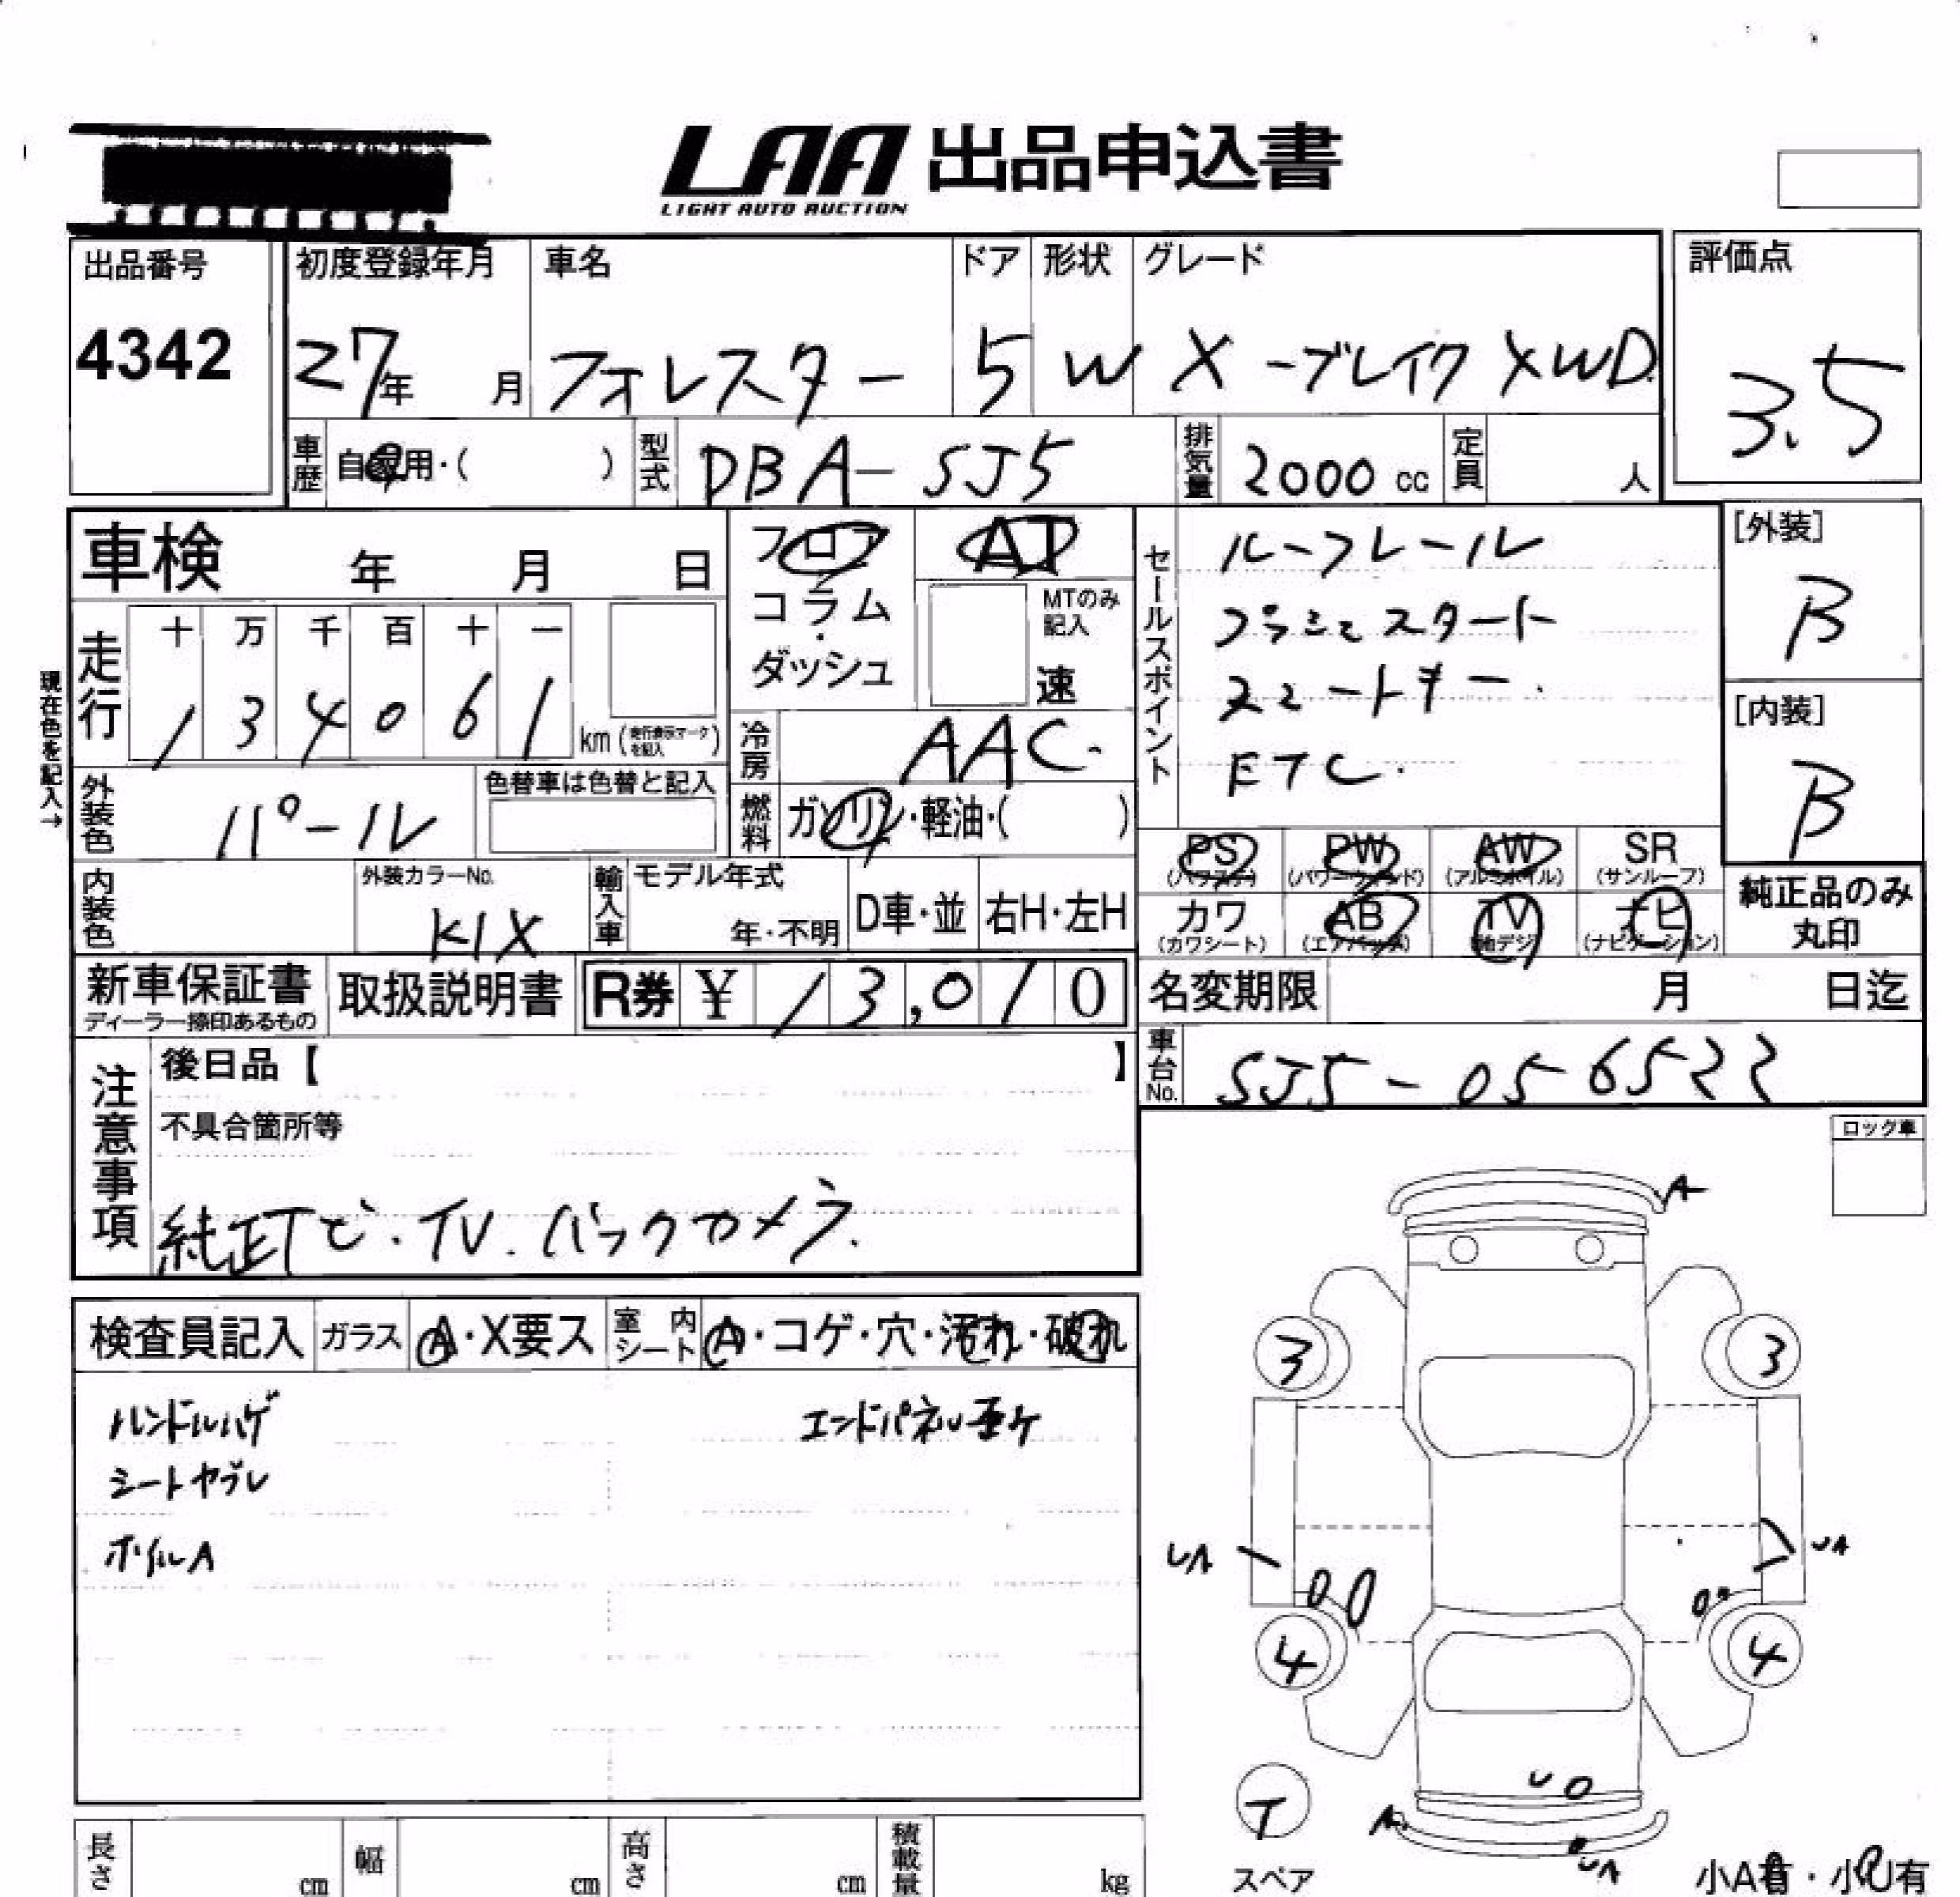 LAA 出品申込書
LIGHT AUTO AUCTION
出品番号 初度登録年月 車名 ドア 形状 グレード 評価点
4342 27年 月 フォレスター 5 W X-ブレイク XWD 3.5
車歴 自家用・( ) 型式 DBA-SJ5 排気量 2000 cc 定員 人
車検 年 月 日 フロア AT
コラム・ MTのみ記入
ダッシュ 速
走行 十 万 千 百 十 一
1 3 4 0 6 1 km (走行表示マークを記入)
現在色を記入→
冷房 AAC.
外装色 パール 色替車は色替と記入
燃料 ガソリン・軽油・( )
内装色 外装カラーNo. K1X
輸入車 モデル年式 年・不明 D車・並 右H・左H
セールスポイント
ルーフレール
プッシュスタート
スマートキー.
ETC.
[外装]
B
[内装]
B
PS AW PW SR
(パワステ) (パワーウィンド) (アルミホイル) (サンルーフ)
カワ AB TV ナビ
(カワシート) (エアバッグ) (地デジ) (ナビゲーション)
純正品のみ
丸印
新車保証書 取扱説明書 R券 ¥ 13,010
ディーラー捺印あるもの
名変期限 月 日迄
車台No. SJ5-056522
注意事項
後日品【 】
不具合箇所等
純正ナビ.TV.バックカメラ.
ロック車
検査員記入 ガラス A・X要ス 室内シート A・コゲ・穴・汚れ・破れ
ハンドルハゲ エンドパネル歪ケ
シートヤブレ
ホイルA
A
3 3
UA UA
4 4
U
T
A UA
スペア
小A有・小U有
長さ cm 幅 cm 高さ cm 積載量 kg